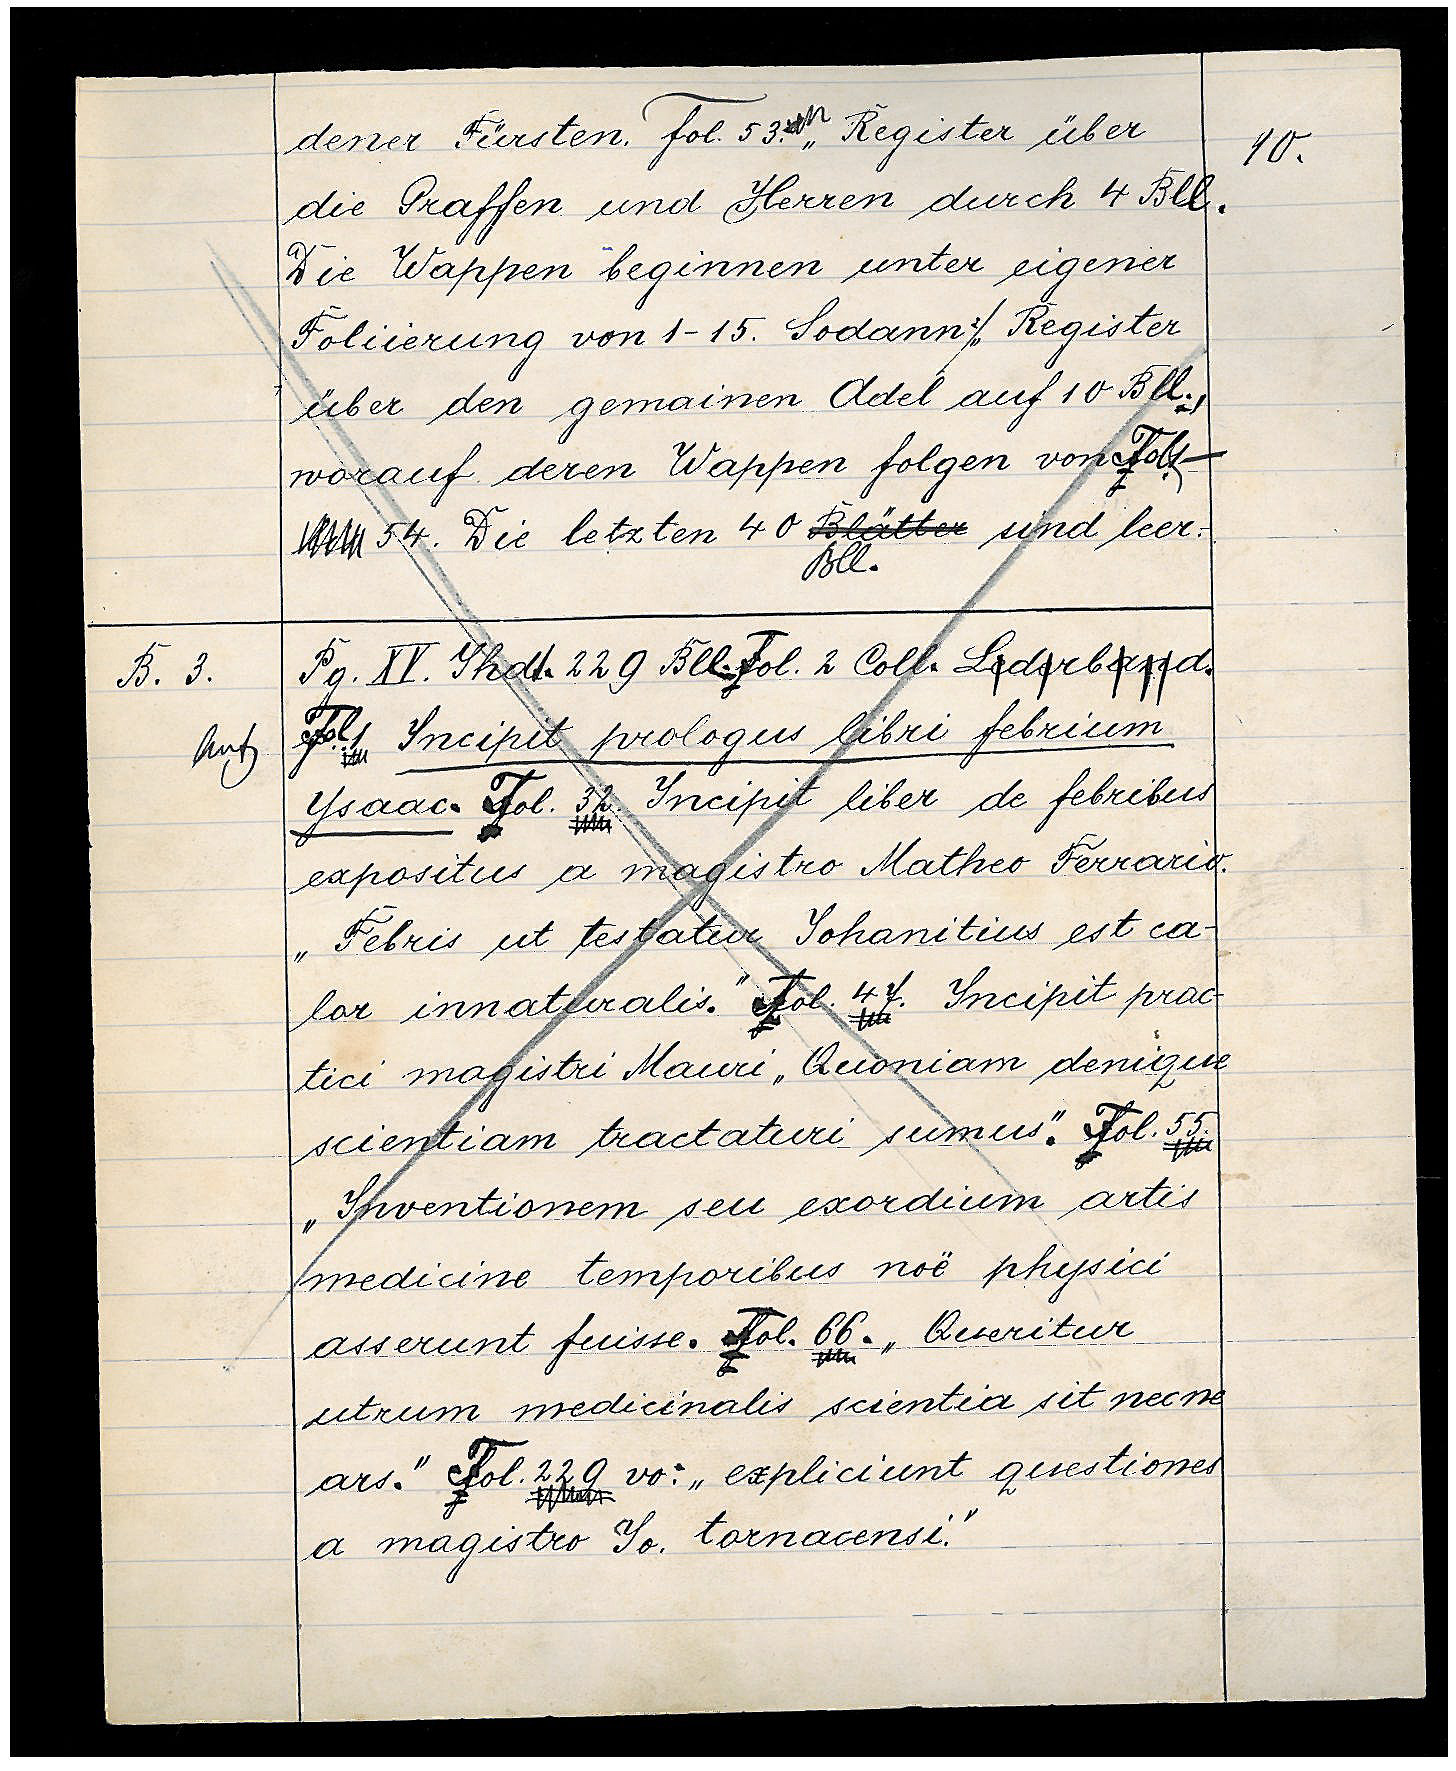 dener Fürsten. Fol. 53. „Register über
10.
die Graffen und Herren durch 4 Bll.
Die Wappen beginnen unter eigener
Foliierung von 1-15. Sodann: „Register
über den gemainen Adel auf 10 Bll.,
worauf deren Wappen folgen von Fol. 1-
54. Die letzten 40 Blätter sind leer.
Bll.
B. 3.
Pg. XV. Jhdt. 229 Bll. Fol. 2 Coll. Lederband.
Fol. 1 Incipit prologus libri febrium
Ysaac. Fol. 32. Incipit liber de febribus
expositus a magistro Matheo Ferrario.
„Febris ut testatur Johanitius est ca-
lor innaturalis." Fol. 47. Incipit prac-
tici magistri Mauri „Quoniam denique
scientiam tractaturi sumus". Fol. 55.
„Inventionem seu exordium artis
medicine temporibus noë physici
asserunt fuisse. Fol. 66. „Queritur
utrum medicinalis scientia sit necne
ars." Fol. 229 vo: „expliciunt questiones
a magistro Jo. tornacensi."